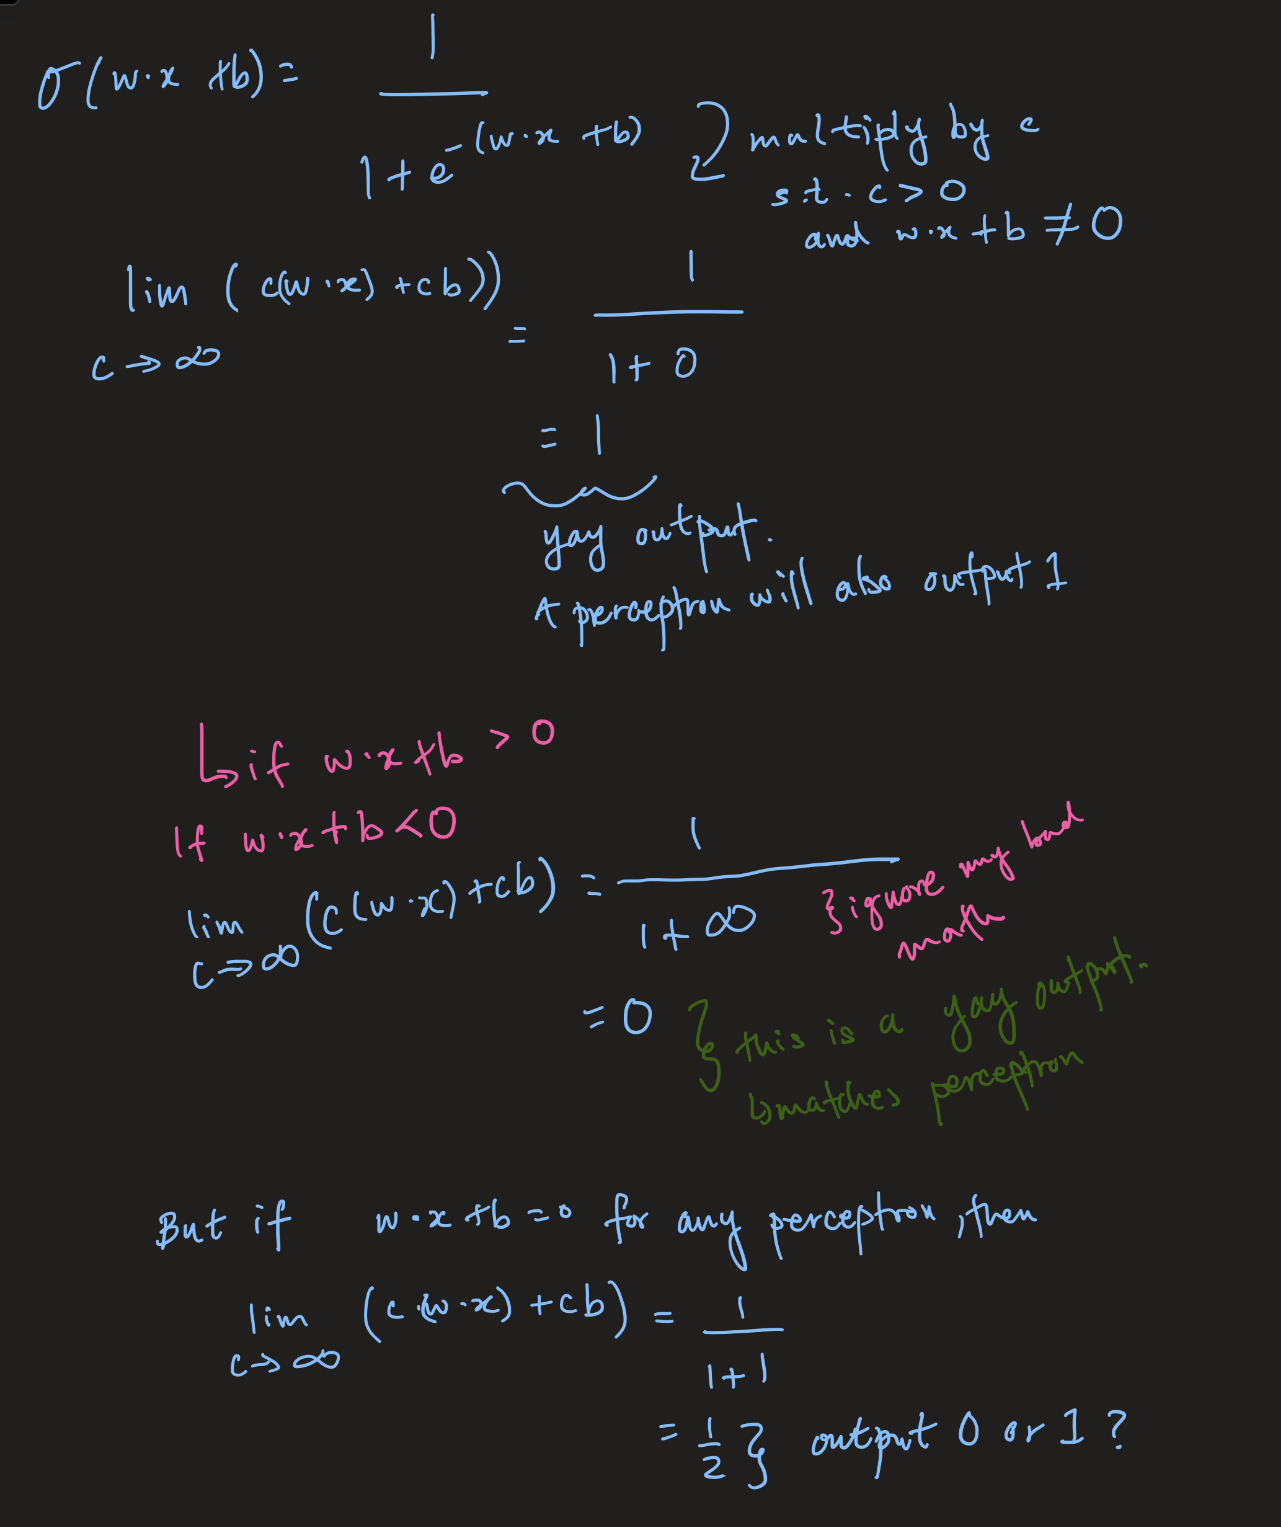 σ(w·x +b) = 1 / (1 + e^-(w·x +b))
} multiply by c
s.t. c > 0
and w·x + b ≠ 0
lim c→∞ ( c(w·x) + cb)) = 1 / (1 + 0)
= 1
yay output.
A perceptron will also output 1
↳ if w·x+b > 0
If w·x+b < 0
lim c→∞ (c(w·x) + cb) = 1 / (1 + ∞)
} ignore my bad
math
= 0 } this is a yay output.
↳ matches perceptron
But if w·x +b = 0 for any perceptron, then
lim c→∞ (c·(w·x) + cb) = 1 / (1+1)
= 1/2 } output 0 or 1 ?